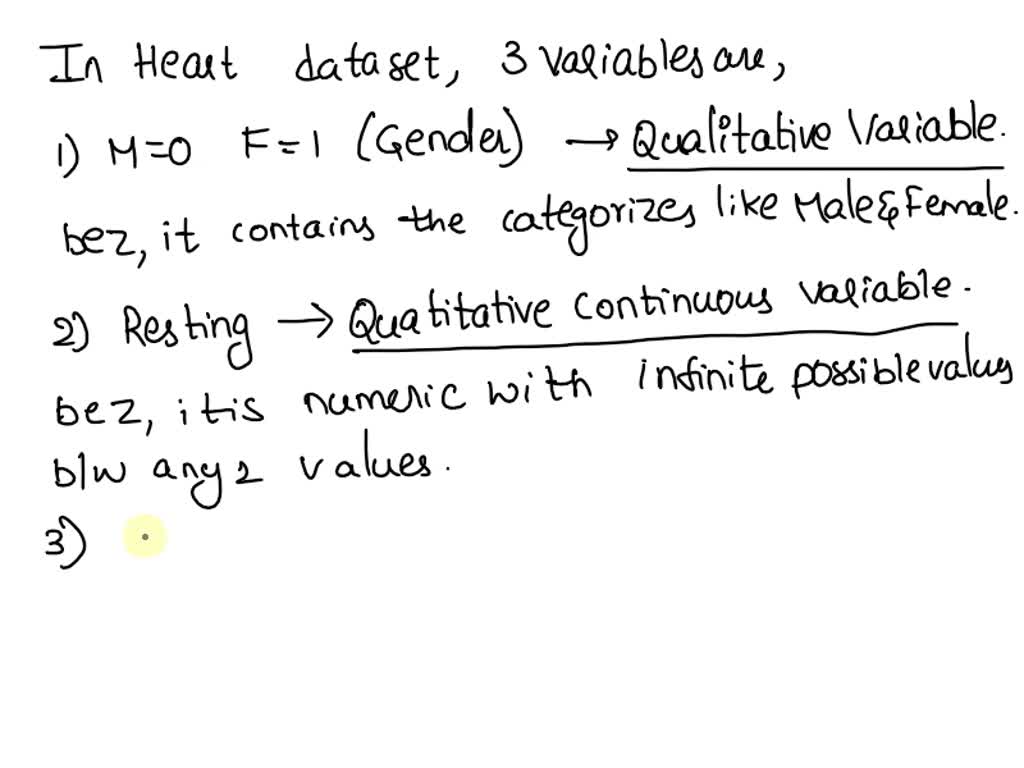 In Heart dataset, 3 variables are,
1) M=0 F=1 (Gender) → Qualitative Variable.
bcz, it contains the categorizes like Male & Female.
2) Resting → Quatitative continuous variable.
bcz, it is numeric with infinite possible values
b/w any 2 values.
3)